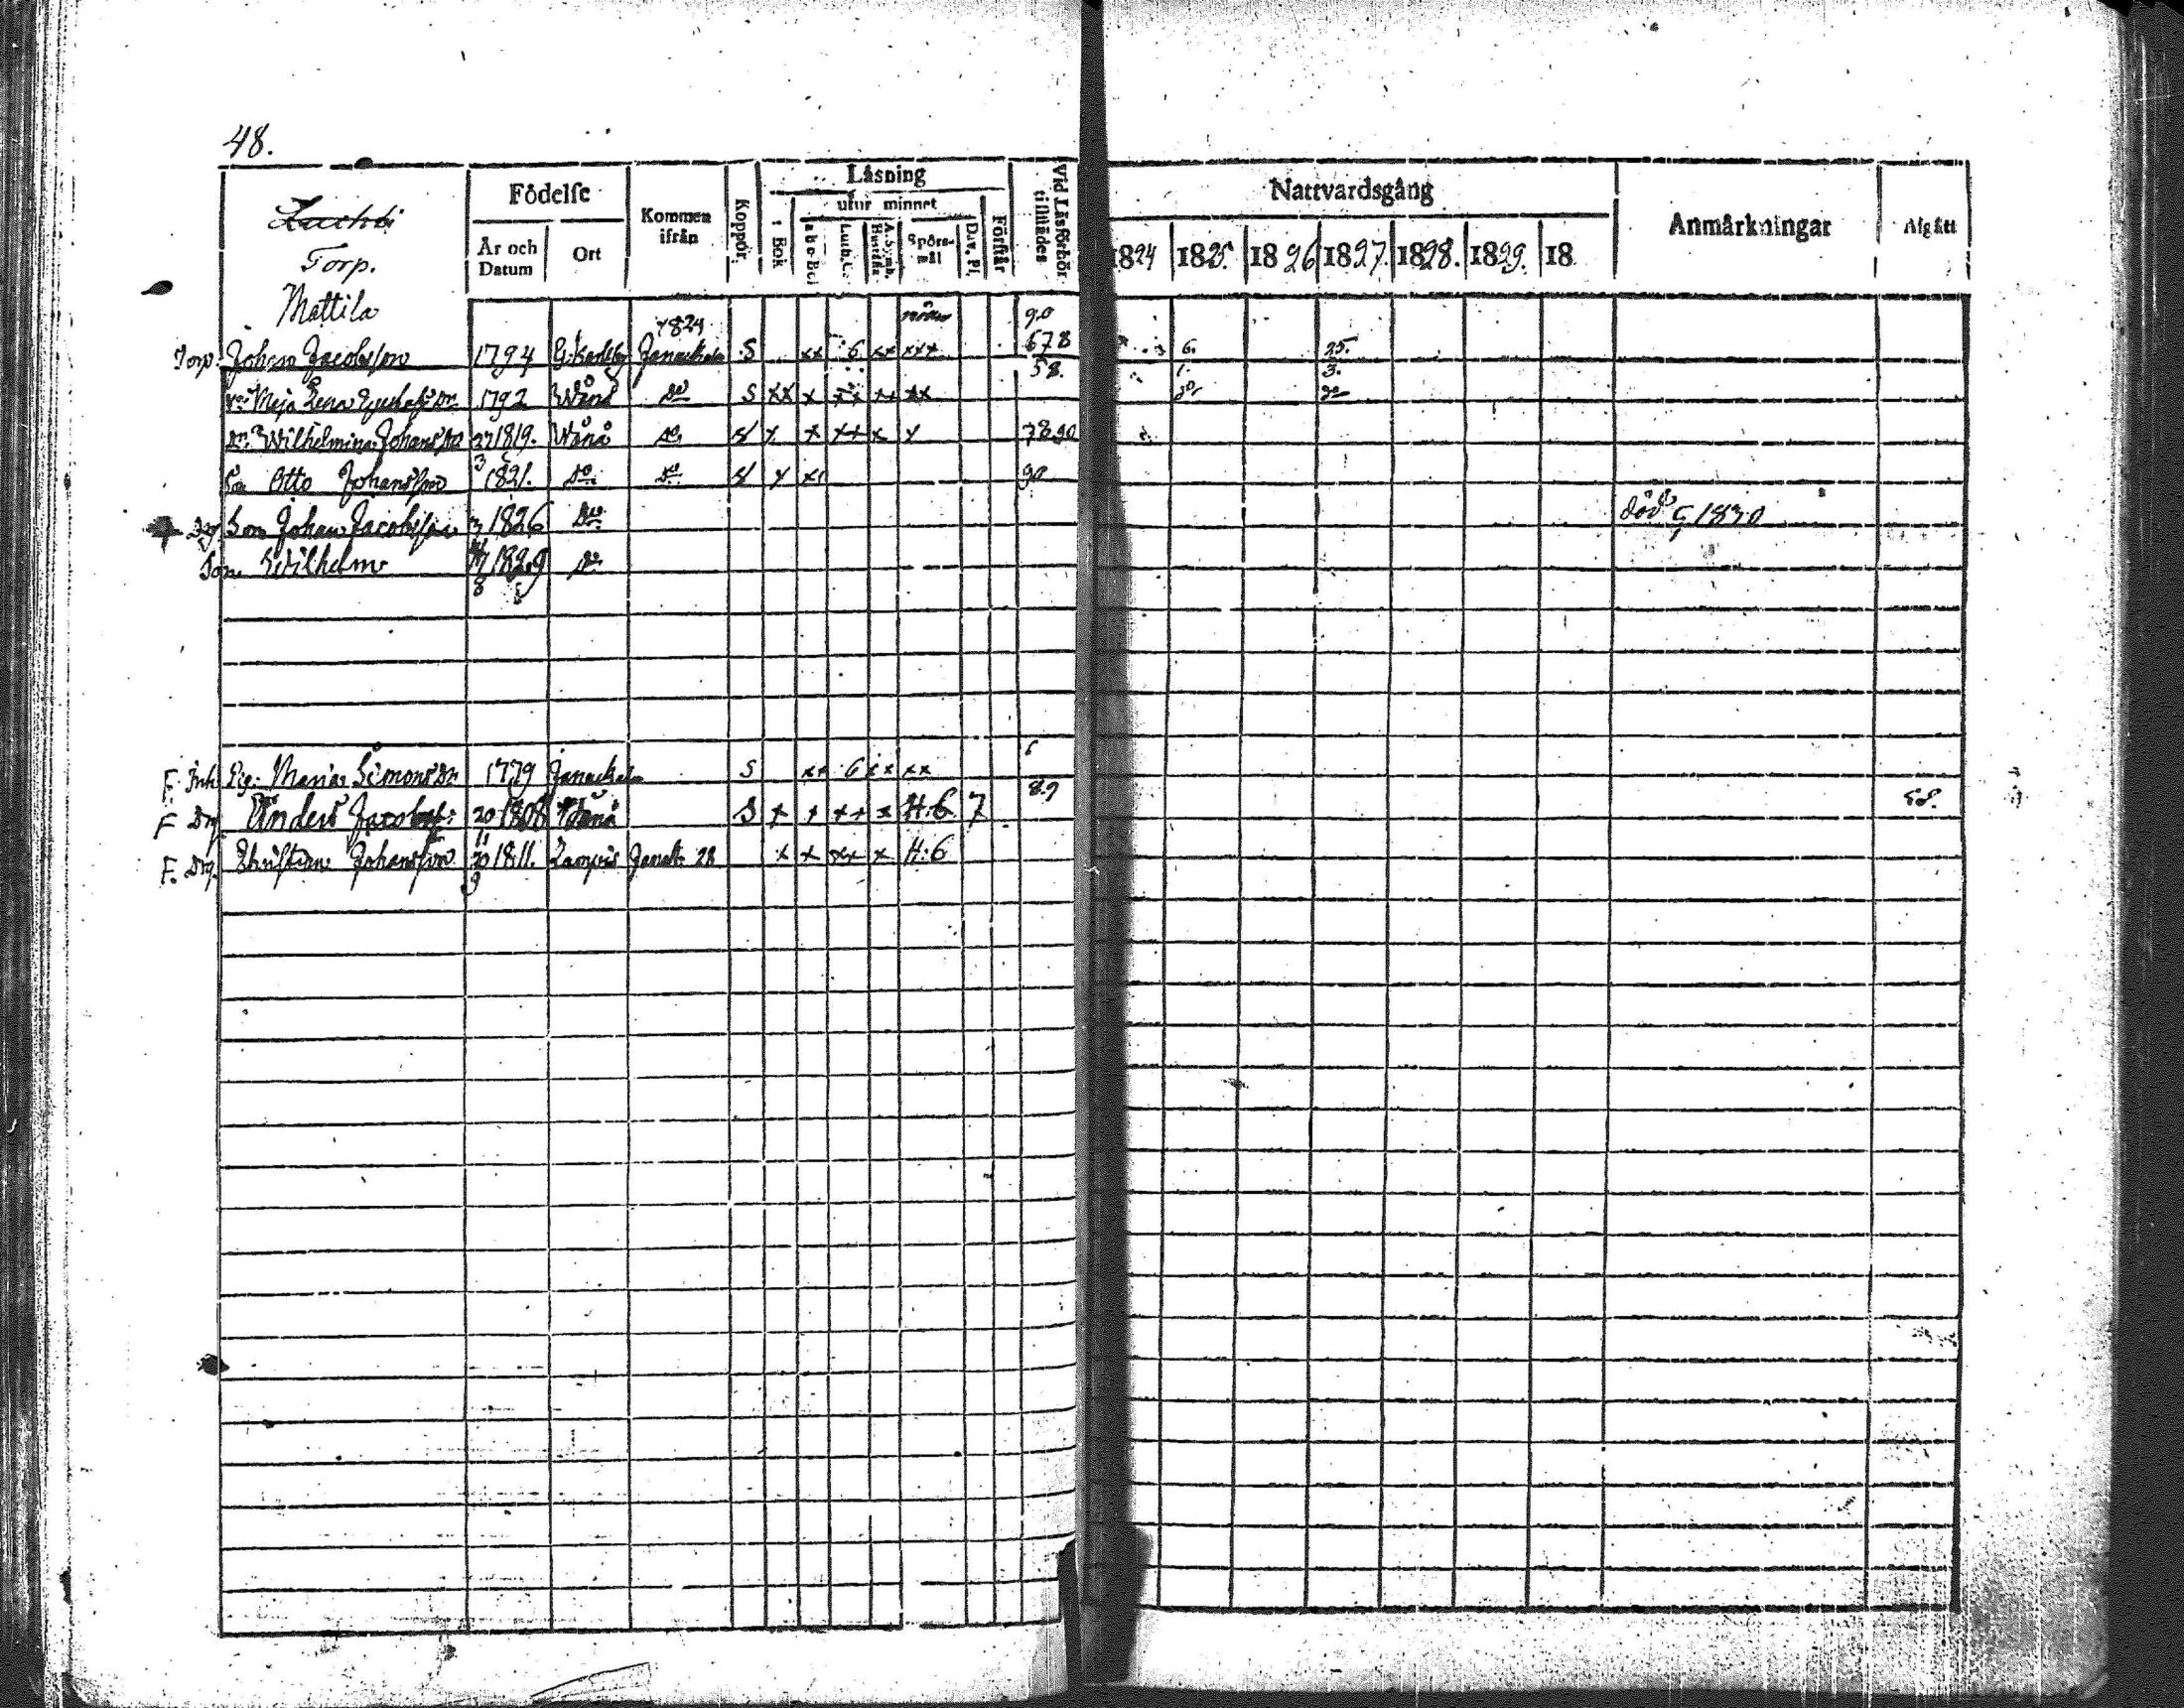 48.
Torp.
Mattila
Födelse
År och Datum
Ort
Kommen ifrån
Koppor
Läsning
utur minnet
i Bok
a b c-Bok
Luth. C.
A. Symb. Hustafla
Spörs-mål
Dav. Ps.
Förstår
Vid Läsförhör tillstädes
Nattvardsgång
1824 1825. 1826 1827. 1828. 1829. 18
Anmärkningar
Afgått
1824 90
Torp. Johan Jacobsson 1794 Janackala S xx 6 xx xxx 678 6. 25.
58. 1. 3.
Maja Lena 1792 Wånå do S xx x xx xx xx do do
Dr. Wilhelmina Johansdr 27 1819. Wånå do x x xx x x 7890
3
Son Otto Johansson 1821. do do x xx 90
Son Johan Jacobsson 1826 do död 1830
Son Wilhelm 1829 do
8
F. Inh. Maria Simonsdr 1779 Janackala S xx 6 xx xx
8.9
F Drg. Anders Jacobss: 20 1808 Wånå S x x xx x H.6 7 28.
11
F. Drg. Christian Johansson 20 1811. Janak 28 x x xx x H:6
9